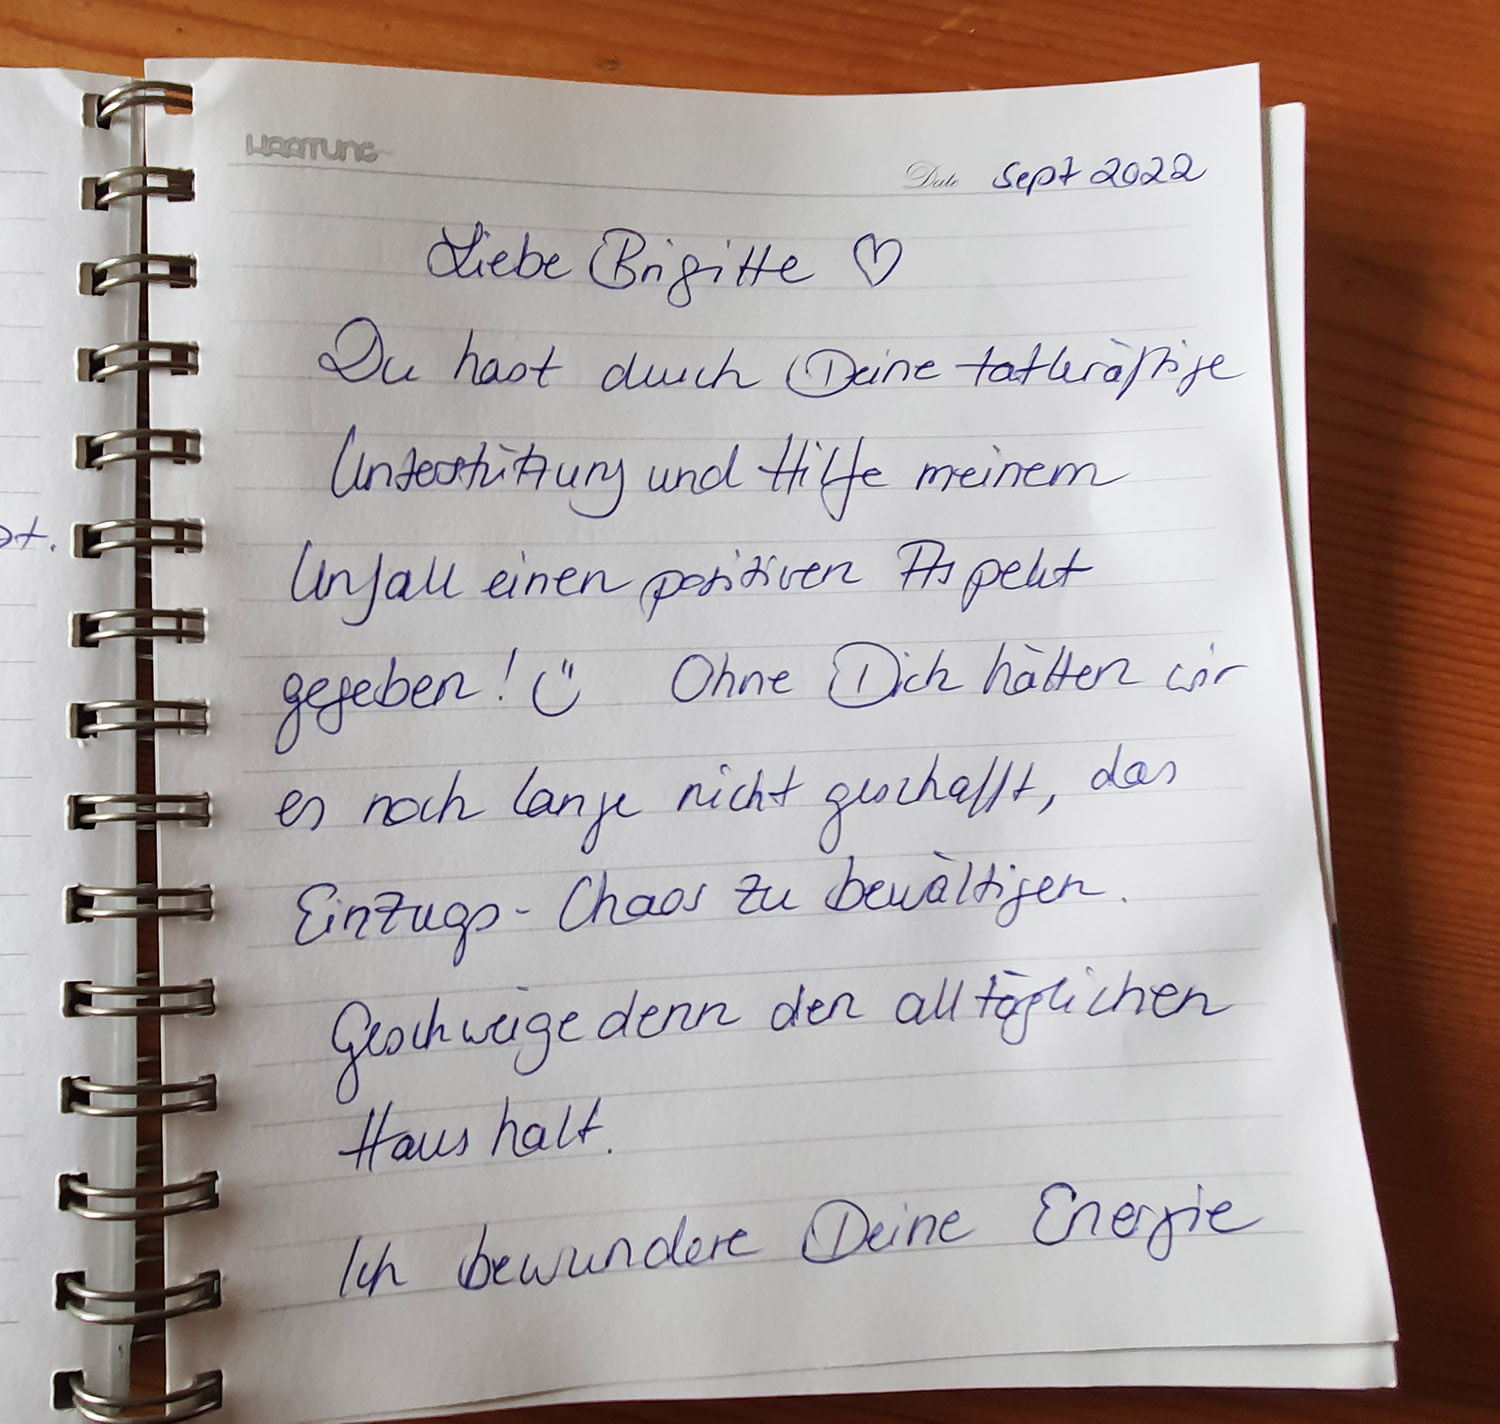 HARTUNG
Date Sept 2022
Liebe Brigitte ♡
Du hast durch Deine tatkräftige
Unterstützung und Hilfe meinem
Unfall einen positiven Aspekt
gegeben! ☺ Ohne Dich hätten wir
es noch lange nicht geschafft, das
Einzugs-Chaos zu bewältigen.
Geschweige denn den alltäglichen
Haushalt.
Ich bewundere Deine Energie